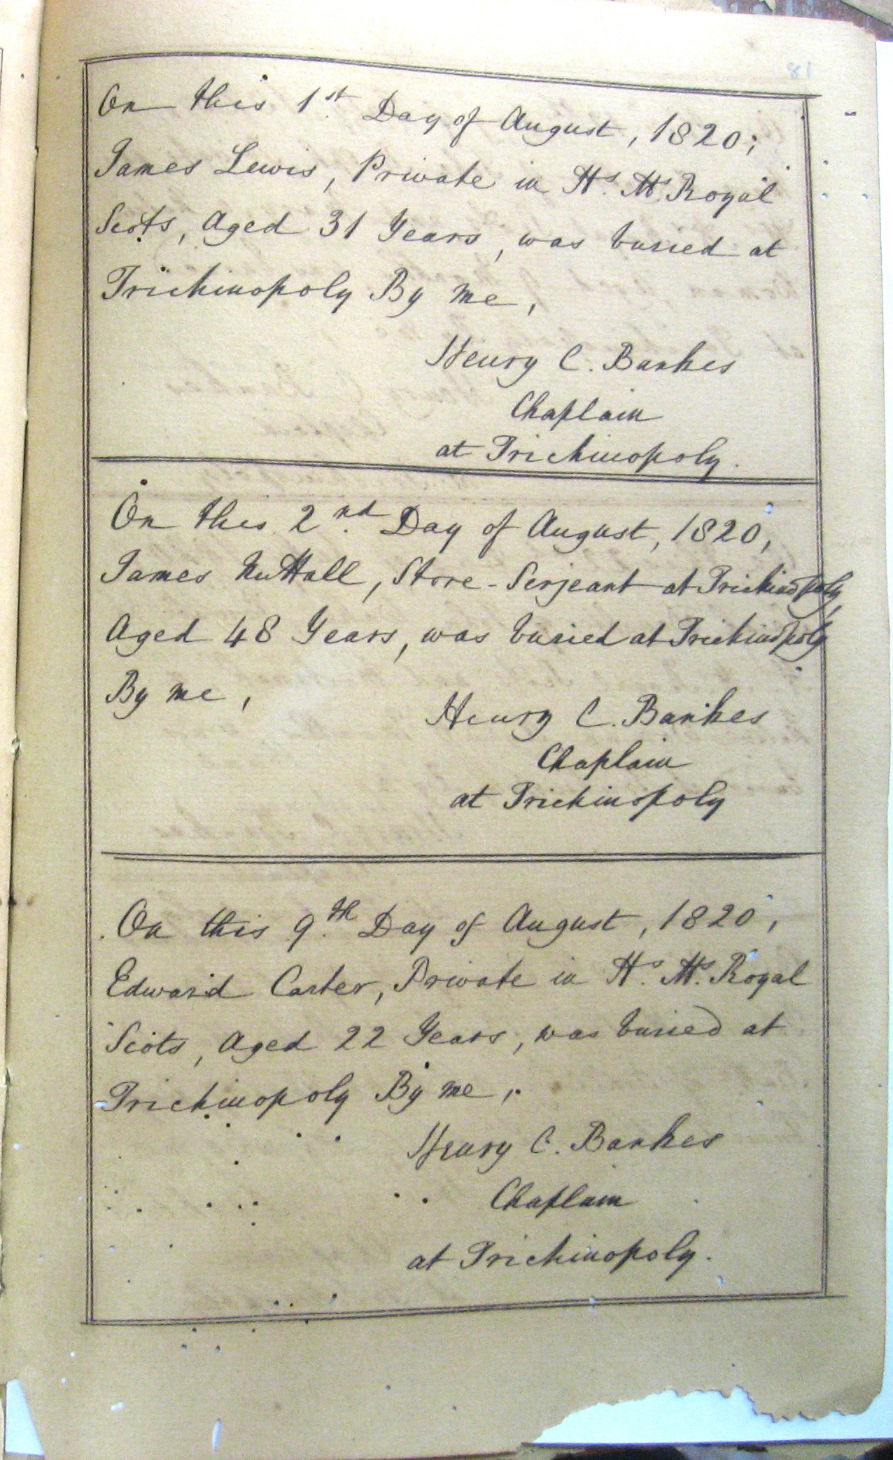 18
On this 1st Day of August, 1820;
James Lewis, Private in Hs. Ms. Royal
Scots, Aged 31 Years, was buried at
Trichinopoly By me,
Henry C. Bankes
Chaplain
at Trichinopoly.
On this 2nd Day of August, 1820,
James NuHall, Store-Serjeant at Trichinopoly,
Aged 48 Years, was buried at Trichinopoly
By me,
Henry C. Bankes
Chaplain
at Trichinopoly
On this 9th Day of August, 1820,
Edward Carter, Private in Hs. Ms. Royal
Scots, Aged 22 Years, was buried at
Trichinopoly By me,
Henry C. Bankes
Chaplain
at Trichinopoly.